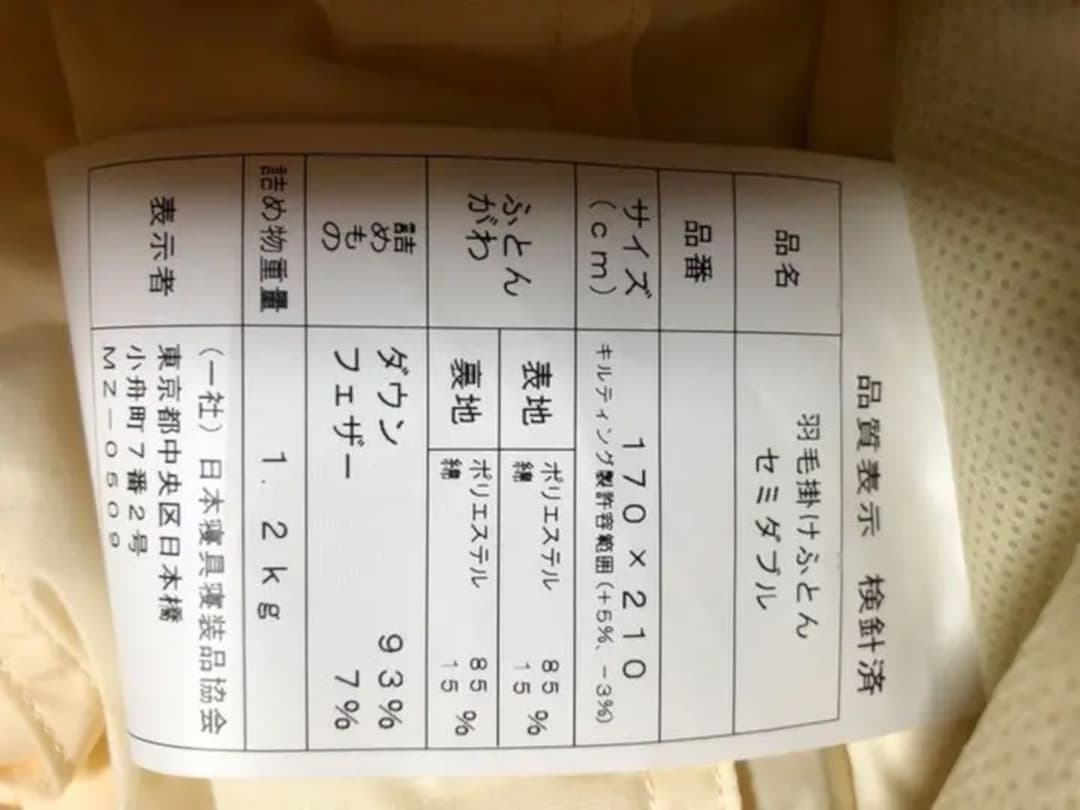 品質表示 検針済
品名 羽毛掛けふとん
セミダブル
品番
サイズ
(cm) 170×210
キルティング製許容範囲(+5%、-3%)
ふとん
がわ 表地 ポリエステル 85%
綿 15
裏地 ポリエステル 85%
綿 15
詰めもの ダウン 93%
フェザー 7%
詰め物重量 1.2kg
表示者 (一社)日本寝具寝装品協会
東京都中央区日本橋
小舟町7番2号
MZ-0509